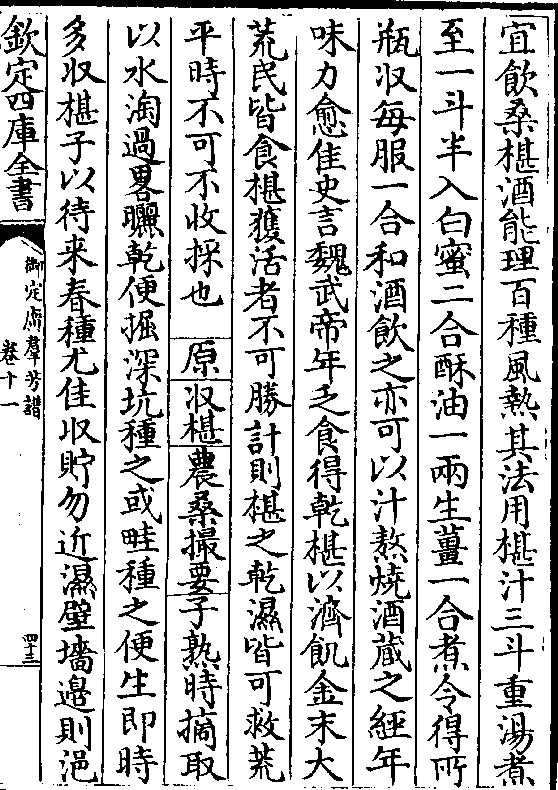 宜飲桑椹酒能理百種風熱其法用椹汁三斗重湯煮
至一斗半入白蜜二合酥油一兩生薑一合煮令得所
瓶收每服一合和酒飲之亦可以汁熬燒酒藏之經年
味力愈佳史言魏武帝年乏食得乾椹以濟飢金末大
荒民皆食椹獲活者不可勝計則椹之乾濕皆可救荒
平時不可不收採也 原 收椹 農桑撮要 子熟時摘取
以水淘過畧曬乾便掘深坑種之或畦種之便生即時
多收椹子以待来春種尤佳收貯勿近濕壁墻邉則浥
欽定四庫全書
御定廣羣芳譜
卷十一
四十三